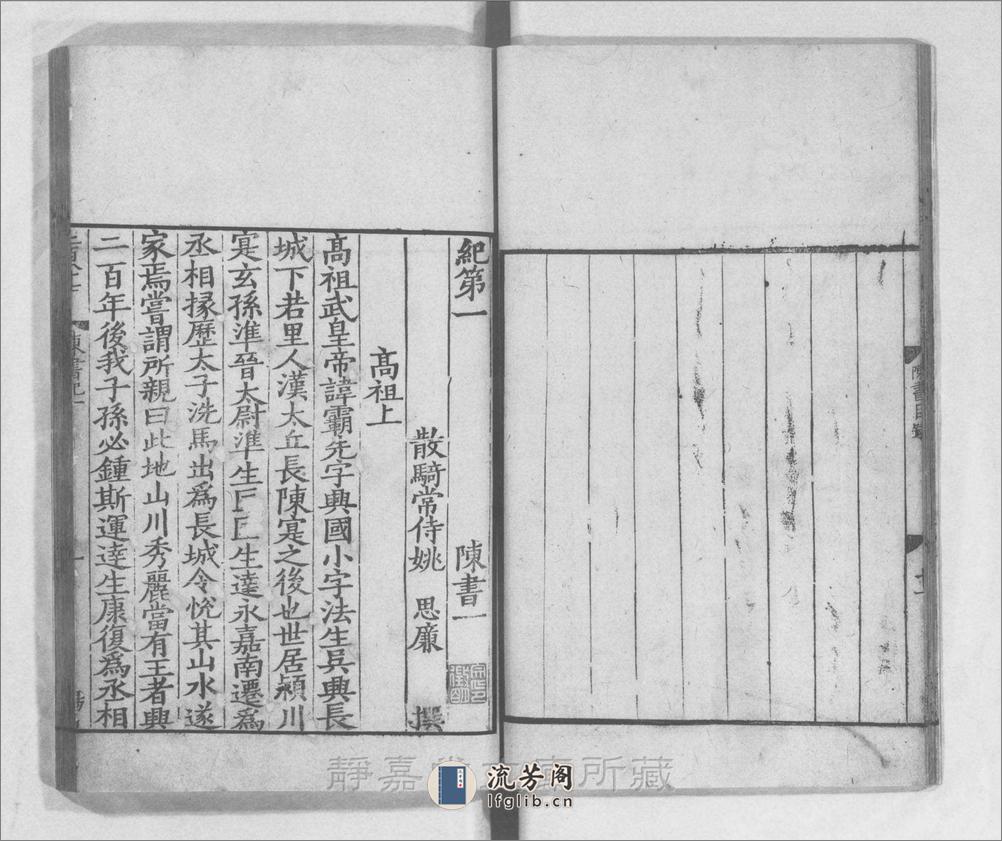 陳書目錄
紀第一 陳書一
散騎常侍姚 思廉 撰
高祖上
高祖武皇帝諱霸先字興國小字法生吳興長
城下若里人漢太丘長陳寔之後也世居潁川
寔玄孫準晉太尉準生匡匡生達永嘉南遷爲
丞相掾歷太子洗馬出爲長城令恱其山水遂
家焉嘗謂所親曰此地山川秀麗當有王者興
二百年後我子孫必鍾斯運達生康復爲丞相
陳書紀一
一
靜嘉堂文庫所藏
流芳阁
lfglib.cn